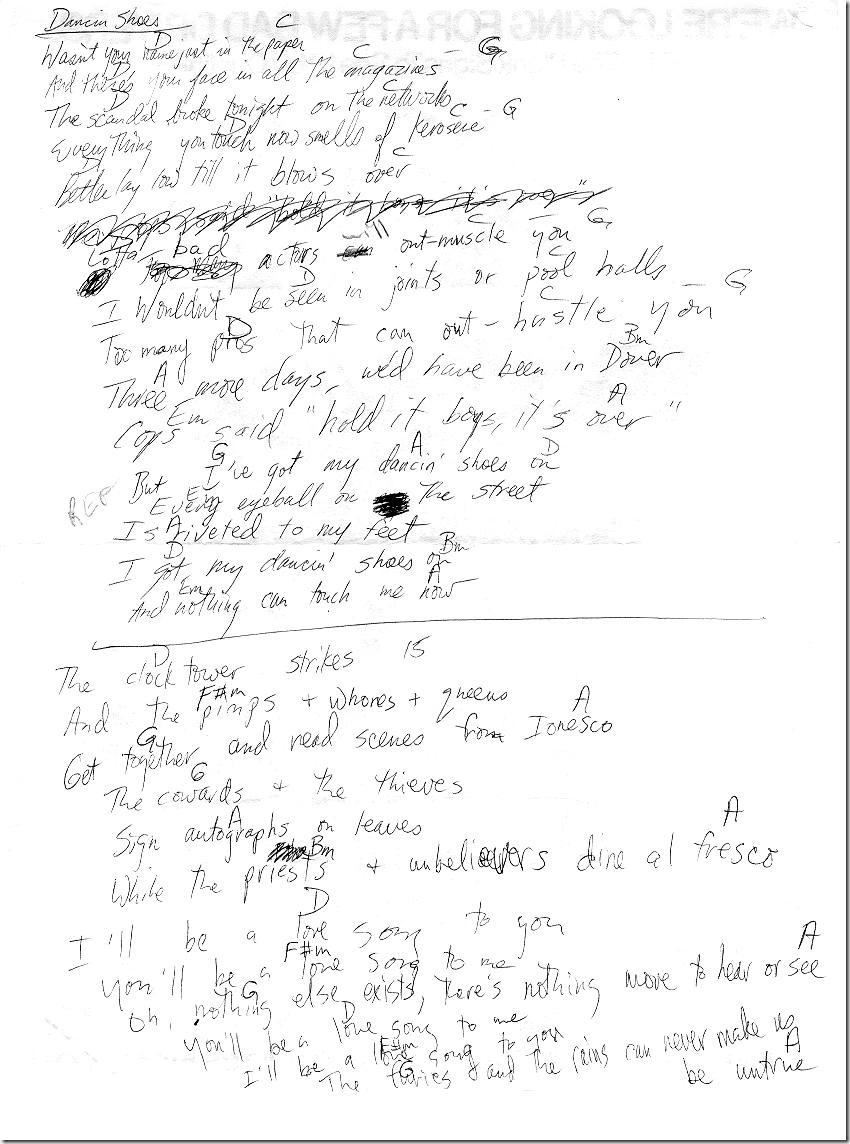 Dancin Shoes
C
Wasn't your name just in the paper
D C - G
And there's your face in all the magazines
D C
The scandal broke tonight on the networks
D D C - G
Everything you touch now smells of kerosene
D C
Better lay low till it blows over
C - G
Lotta bad actors out-muscle you
D C - G
I wouldn't be seen in joints or pool halls
D C
Too many pros that can out-hustle you
A Bm
Three more days, we'd have been in Dover
Em A
Cops said "hold it boys, it's over"
G A D
But I've got my dancin' shoes on
REF
Em
Every eyeball on the street
A
Is riveted to my feet
D Bm
I got my dancin' shoes on
Em A
And nothing can touch me now
D
The clock tower strikes 15
F#m A
And the pimps + whores + queens
G
Get together and read scenes from Ionesco
G
The cowards + the thieves
A
Sign autographs on leaves
Bm A
While the priests + unbelievers dine al fresco
D
I'll be a love song to you
F#m
You'll be a love song to me
G A
Oh, nothing else exists, there's nothing more to hear or see
D
You'll be a love song to me
F#m
I'll be a love song to you
G A
The furies and the rains can never make us
be untrue